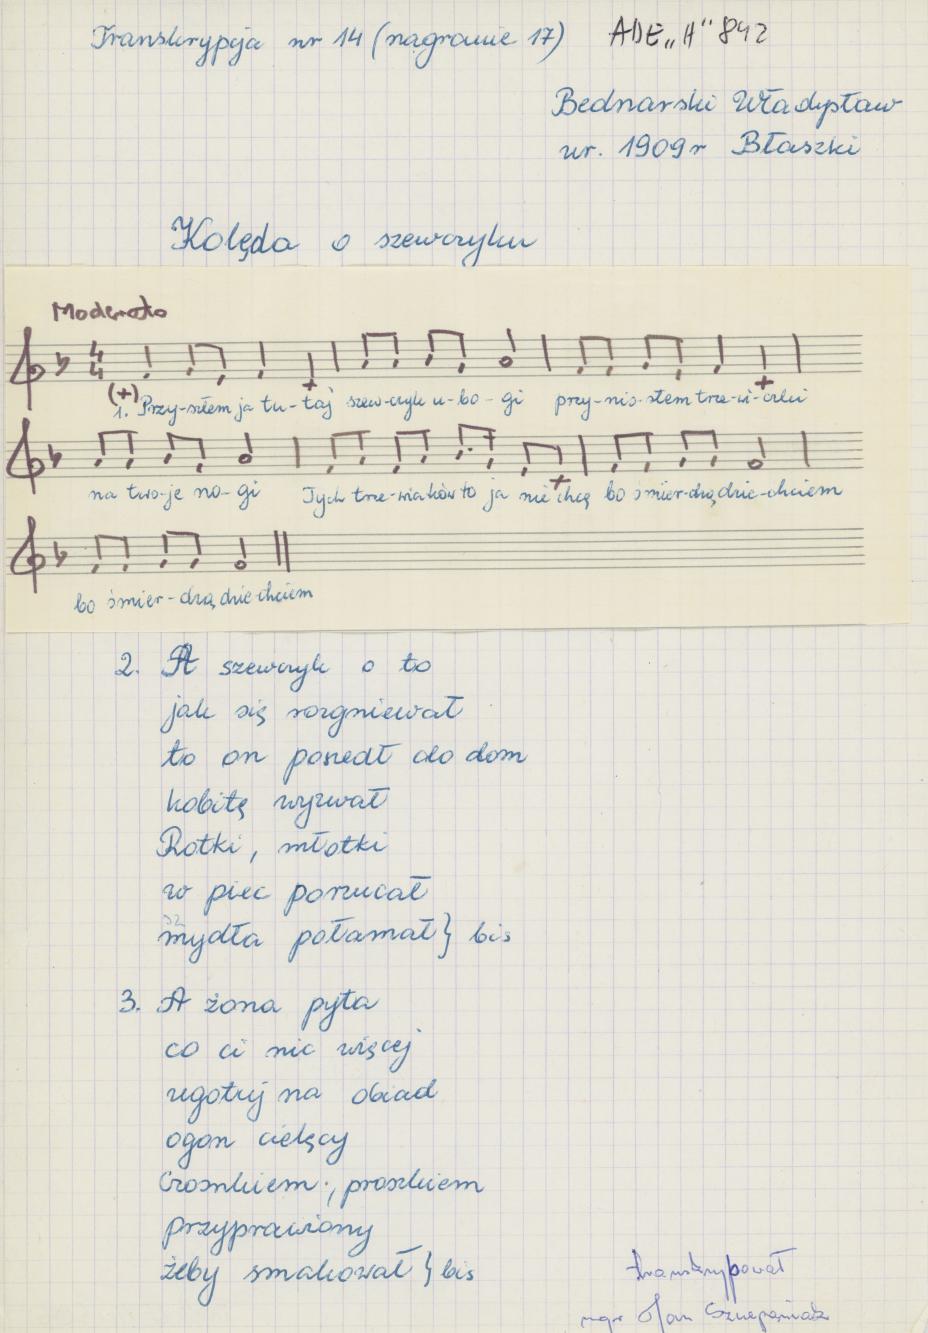 Transkrypcja nr 14 (nagranie 17) ADE „H" 842
Bednarski Władysław
ur. 1909 r Błaszki
Kolęda o szewczyku
Moderato
4
4
(+)
1. Przy-szłem ja tu-taj szew-czyk u-bo-gi przy-nio-słem trze-wi-czki
na two-je no-gi Tych trze-wiaków to ja nie chcę bo śmier-dzą dzie-chciem
bo śmier-dzą dzie-chciem
2. A szewczyk o to
jak się rozgniewał
to on poszedł do dom
kobitę wyzwał
Rotki, młotki
w piec porzucał
sz
mydła połamał } bis
3. A żona pyta
co ci nic więcej
ugotuj na obiad
ogon cielęcy
Czosnkiem, proszkiem
przyprawiony
żeby smakował } bis
transkrypował
mgr Jan Szczepaniak